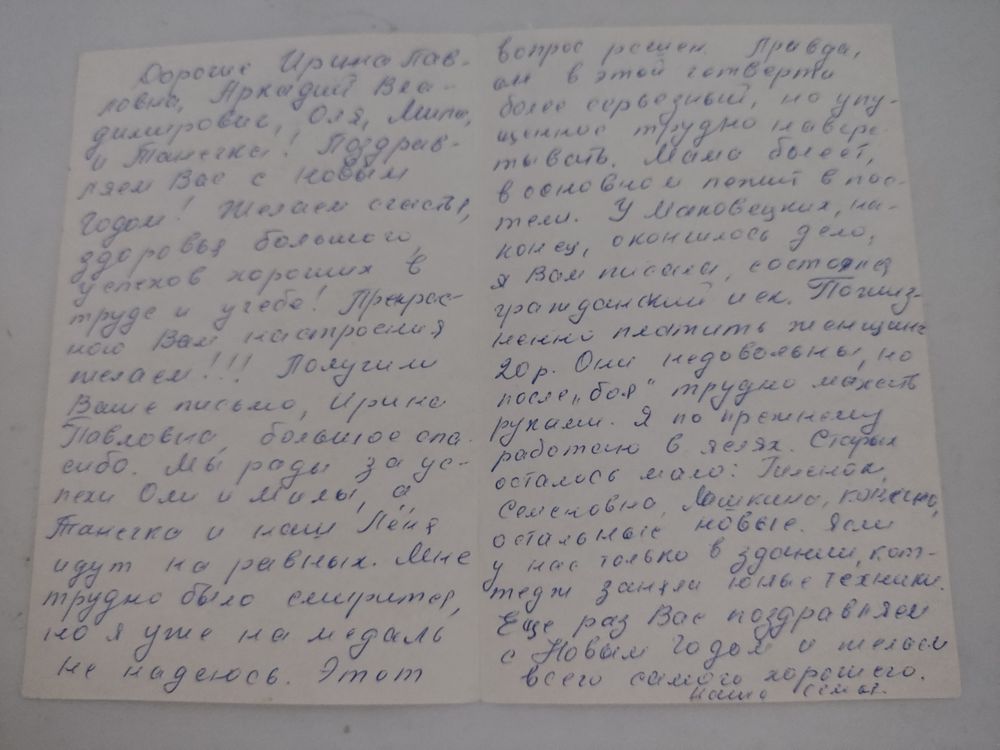 Дорогие Ирина Пав-
ловна, Аркадий Вла-
димирович, Оля, Мила,
и Танечка! Поздрав-
ляем Вас с Новым
Годом! Желаем счастья,
здоровья большого,
успехов хороших в
труде и учебе! Прекрас-
ного Вам настроения
желаем!!! Получили
Ваше письмо, Ирина
Павловна, большое спа-
сибо. Мы рады за ус-
пехи Оли и Милы, а
Танечка и наш Лёня
идут на равных. Мне
трудно было смирится,
но я уже на медаль
не надеюсь. Этот
вопрос решен. Правда,
он в этой четверти
более серьезный, но упу-
щенное трудно наверс-
тывать. Мама болеет,
в основном лежит в пос-
тели. У Маковецких, на-
конец, окончилось дело,
я Вам писала, состоялся
гражданский иск. Пожиз-
ненно платить женщине
20 р. Они недовольны, но
после „боя" трудно махать
руками. Я по прежнему
работаю в яслях. Старых
осталось мало:
Семеновна, конечно,
остальные новые. Ясли
у нас только в здании, кот-
тедж заняли юные техники.
Еще раз Вас поздравляем
с Новым Годом и желаем
всего самого хорошего.
наша семья.